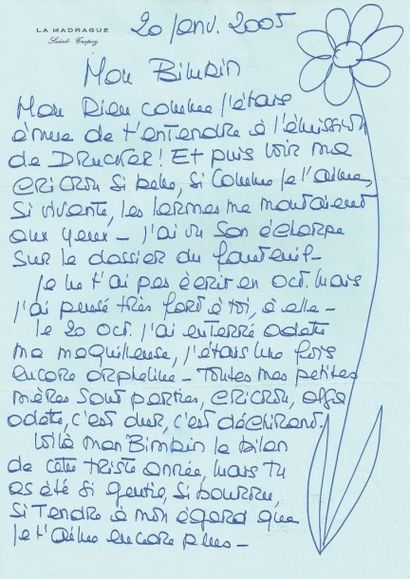 LA MADRAGUE
Saint Tropez
20 Janv. 2005
Mon Bimbin
Mon Dieu comme j'étais
émue de t'entendre à l'émission
de Drucker! Et puis voir ma
CRICRON si belle, si comme je l'aime,
si vivante, les larmes me montaient
aux yeux - J'ai vu son écharpe
sur le dossier du fauteuil -
Je ne t'ai pas écrit en oct. mais
j'ai pensé très fort à toi, à elle -
Le 20 oct. j'ai enterré odette
ma maquilleuse, j'étais une fois
encore orpheline - Toutes mes petites
mères sont parties, CRICRON, olga
odette, c'est dur, c'est déchirant.
Voilà mon Bimbin le bilan
de cette triste année, mais tu
as été si gentil, si bourru,
si Tendre à mon égard que
je t'aime encore plus -